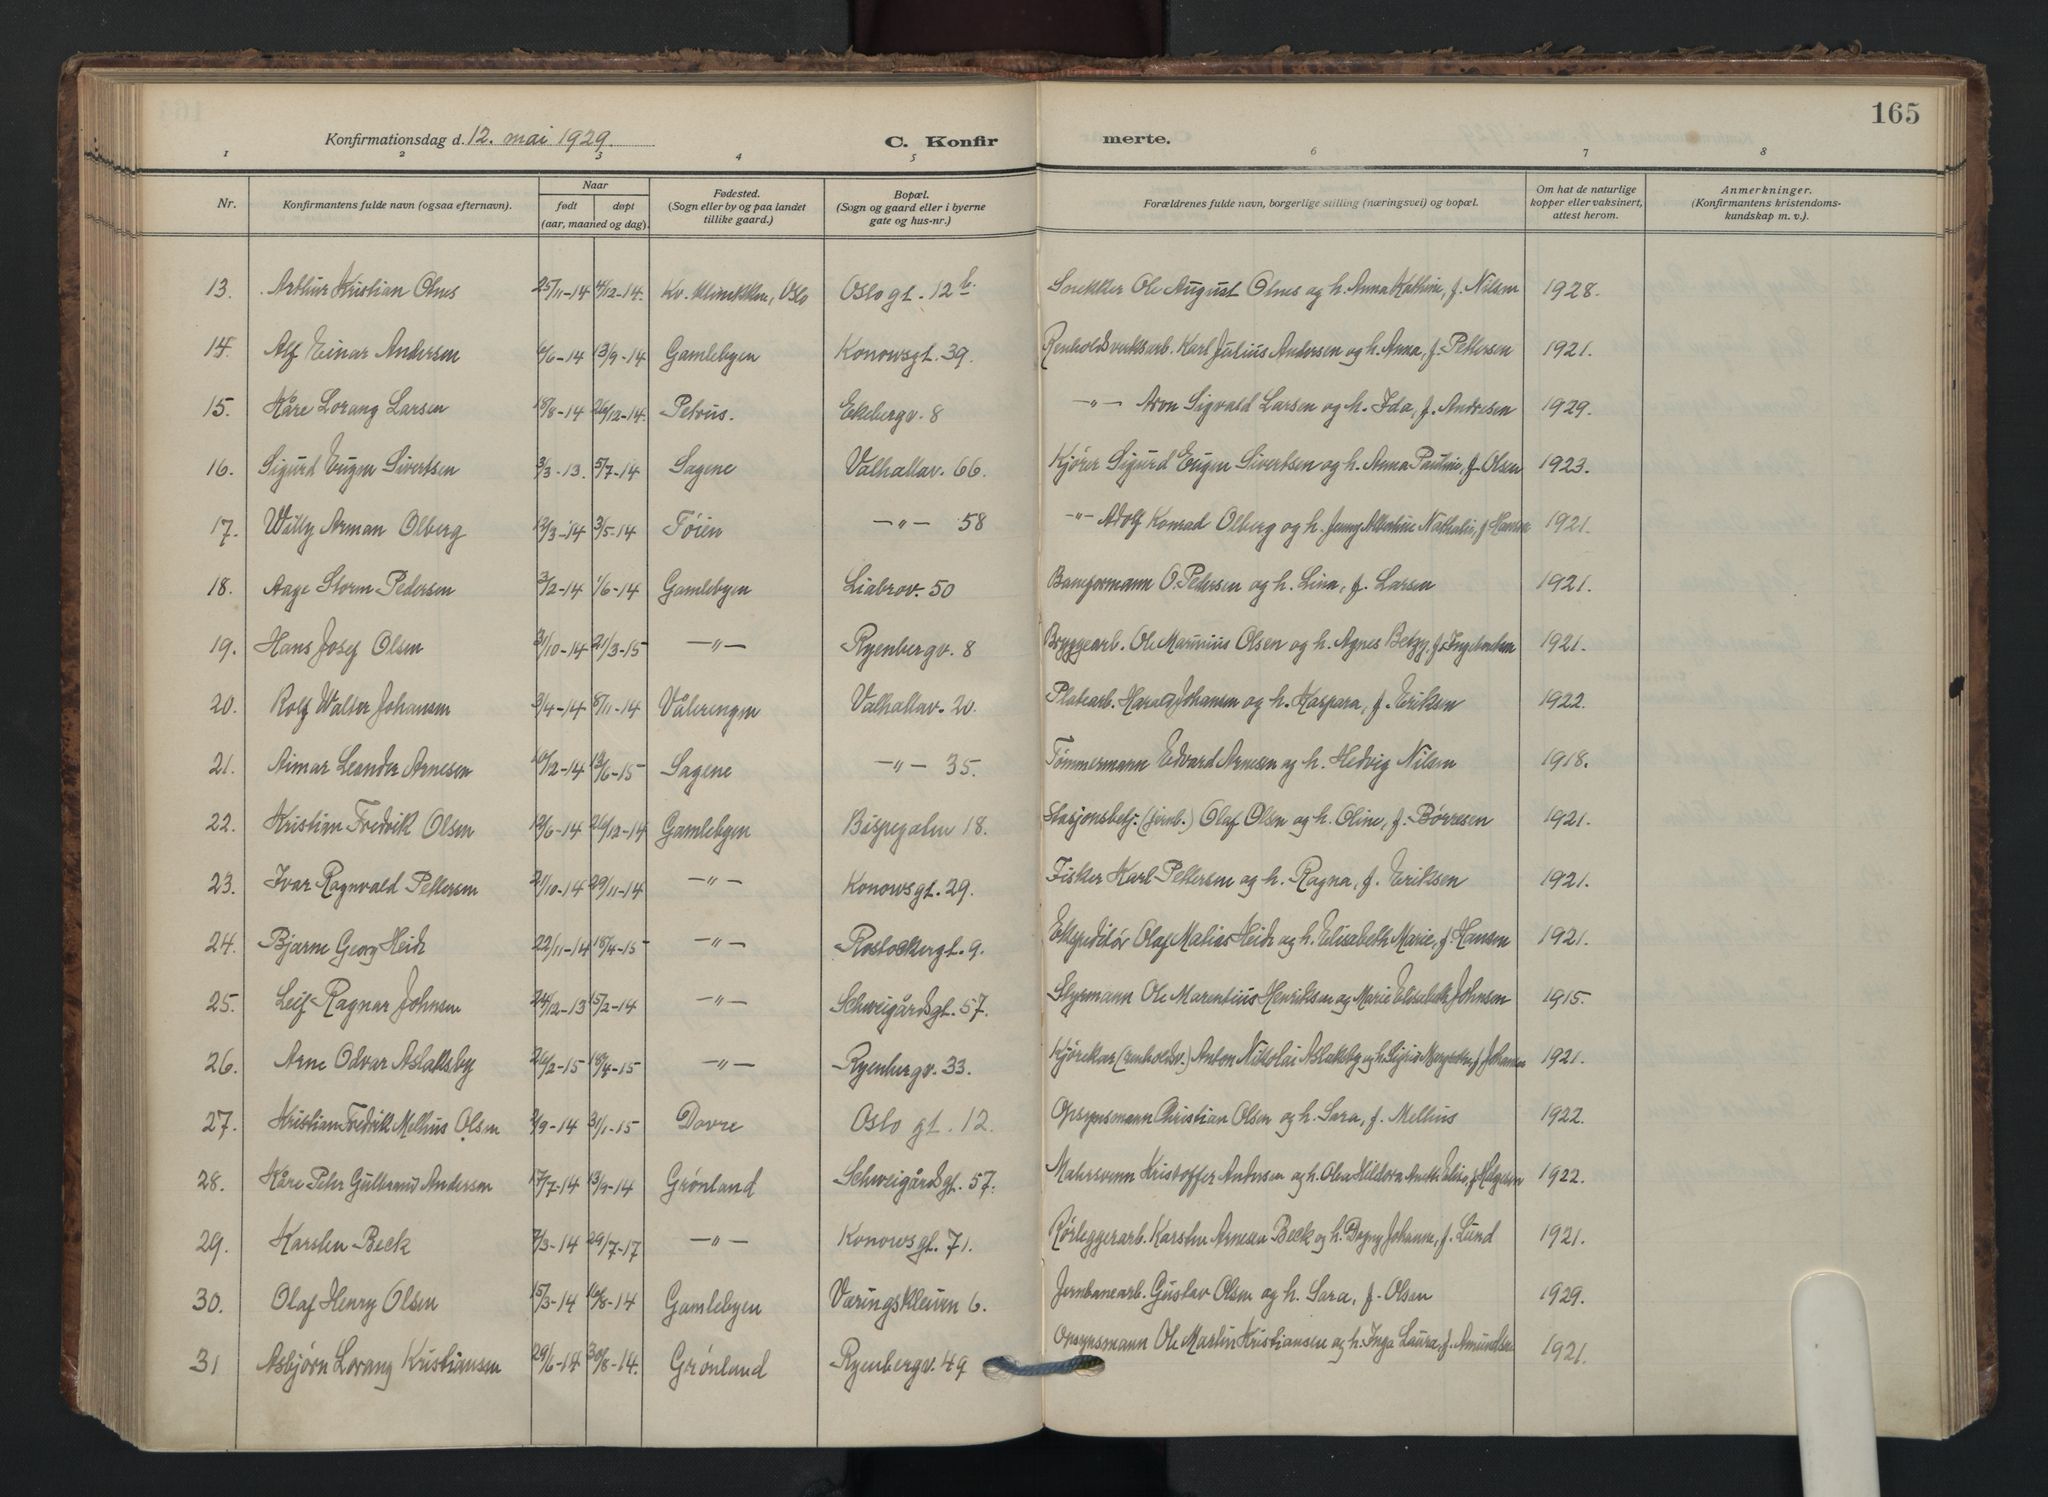 165
Konfirmationsdag d. 12. mai 1929. C. Konfirmerte.
1 2 3 4 5 6 7 8
Nr. Konfirmantens fulde navn (ogsaa efternavn). Naar født døpt (aar, maaned og dag). Fødested. (Sogn eller by og paa landet tillike gaard.) Bopæl. (Sogn og gaard eller i byerne gate og hus-nr.) Forældrenes fulde navn, borgerlige stilling (næringsvei) og bopæl. Om hat de naturlige kopper eller vaksinert, attest herom. Anmerkninger. (Konfirmantens kristendomskundskap m. v.).
13. Arthur Kristian Olnes 25/11-14 4/12-14. Kv. klinikken, Oslo Oslo gt. 12 b. Snekker Ole August Olnes og h. Anna Kathine, f. Nilsen 1928.
14. Alf Einar Andersen 4/6-14 13/9-14 Gamlebyen Konowsgt. 39. Renholdsverksarb. Karl Julius Andersen og h. Anna, f. Pettersen 1921.
15. Kåre Lorang Larsen 18/8-14 26/12-14. Petrus. Ekebergv. 8 —"— Aron Sigvald Larsen og h. Ida, f. Andresen 1929.
16. Sigurd Eugen Sivertsen 3/3-13. 5/7-14 Sagene Valhallav. 66. Kjører Sigurd Eugen Sivertsen og h. Anna Pauline, f. Olsen 1923.
17. Willy Arman Olberg 12/3-14 3/5-14 Tøien —"— 58 —"— Adolf Konrad Olberg og h. Jenny Albertine Nathalie, f. Hansen 1921.
18. Aage Storm-Pedersen 3/2-14 1/6-14 Gamlebyen Liabrov. 50 O. Pedersen og h. Lina, f. Larsen 1921.
19. Hans Josef Olsen 31/10-14 21/3-15 —"— Ryenbergv. 8 Bryggearb. Ole Marinius Olsen og h. Agnes Betzy, f. Ingebretsen 1921.
20. Rolf Walter Johansen 3/4-14 8/11-14 Vålerengen Valhallav. 20. Platearb. Harald Johansen og h. Kaspara, f. Eriksen 1922.
21. Aimar Leander Arnesen 10/12-14 13/6-15 Sagene —"— 35. Tømmermann Edvard Arnesen og h. Hedvig Nilsen 1918.
22. Kristian Fredrik Olsen 19/6-14 26/12-14 Gamlebyen Bispegaten 18. Stasjonsbetj. (jernb.) Olaf Olsen og h. Oline, f. Børresen 1921.
23. Ivar Ragnvald Pettersen 21/10-14 29/11-14 —"— Konowsgt. 29. Fisker Karl Pettersen og h. Ragna, f. Eriksen 1921.
24. Bjarne Georg Heide 22/11-14 18/4-15 —"— Rostockergt. 9. Ekspeditør Olaf Matias Heide og h. Elisabeth Marie, f. Hansen 1921.
25. Leif Ragnar Johnsen 24/12-13 15/2-14 —"— Schweigårdsgt. 57. Styrmann Ole Marentius Henriksen og Marie Elisabeth Johnsen 1915.
26. Arne Odvar Aslaksby 26/2-15 18/4-15 —"— Ryenbergv. 33. Kjørekar (renholdsv.) Anton Nikolai Aslaksby og h. Sigrid Margrethe, f. Johansen 1921.
27. Kristian Fredrik Melhus Olsen 2/9-14 31/1-15 Dovre Oslo gt. 12. Opsynsmann Christian Olsen og h. Sara, f. Melhus 1922.
28. Kåre Peter Gulbrand Andersen 17/7-14 13/9-14 Grønland Schweigårdsgt. 57. Malersvenn Kristoffer Andersen og h. Olea Hildora Anette Elise, f. Helgesen 1922.
29. Karsten Beck 7/3-14 29/7-17 —"— Konowsgt. 71. Rørleggerarb. Karsten Arnesen Beck og h. Dagny Johanne, f. Lund 1921.
30. Olaf Henry Olsen 15/3-14 16/8-14 Gamlebyen Væringskleven 6. Jernbanearb. Gustav Olsen og h. Sara, f. Olsen 1929.
31 Asbjørn Lorang Kristiansen 29/6-14 30/8-14. Grønland Ryenbergv. 49 Opsynsmann Ole Martin Kristiansen og h. Inga Laura, f. Amundsen 1921.